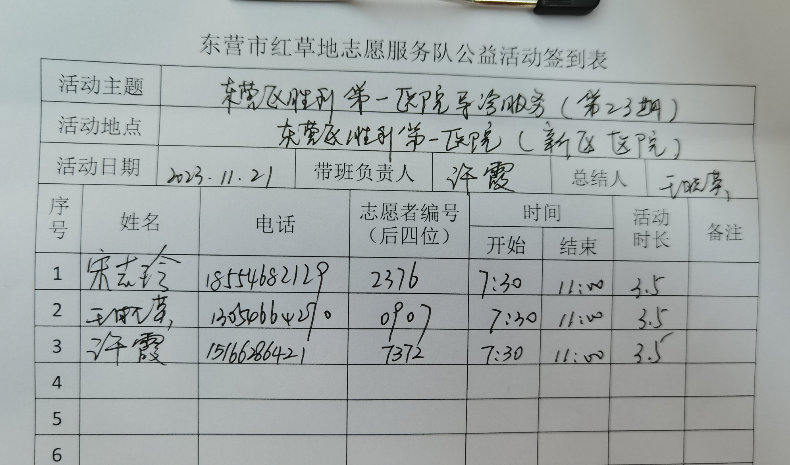 东营市红草地志愿服务队公益活动签到表
活动主题 东营区胜利第一医院导诊服务（第23期）
活动地点 东营区胜利第一医院（新区医院）
活动日期 2023.11.21 带班负责人 许霞 总结人 王晓英
序号 姓名 电话 志愿者编号（后四位） 时间 活动时长 备注
开始 结束
1 宋志玲 18554682129 2376 7:30 11:00 3.5
2 王晓英 13054664290 0907 7:30 11:00 3.5
3 许霞 15166286421 7372 7:30 11:00 3.5
4
5
6